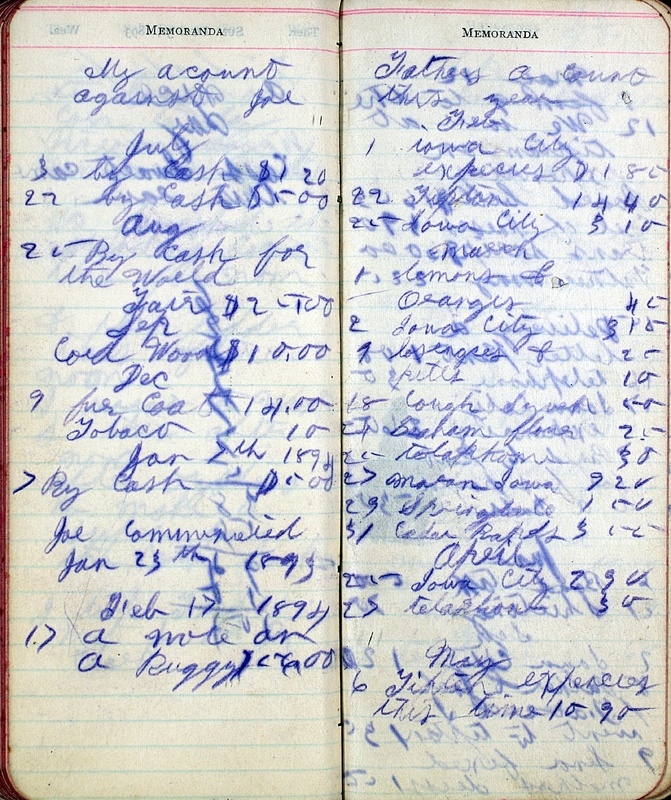 MEMORANDA
My acount
against Joe
July
3 by Cash $1 20
22 by Cash $5 00
Aug
25 By Cash for
the World
Faire $25 00
Sep
Cord Wood $10.00
Dec
9 fur Coat 14.00
Tobaco 10
Jan 5th 1894
By Cash $5 00
Joe commenced
Jan 23th 1893
Feb 17 1894
17 a note on
a Buggy
MEMORANDA
Fathers acount
this year
Feb
1 iowa City
expecies $1 85
22 Tipton 14 40
25 Iowa City 3 10
March
1 lemons &
Oranges 45
2 Iowa City 3 15
9 losengres & 25
pills 10
18 Cough 50
Graham flour 25
telaphone 30
27 Iowa 9 20
29 Springdale 1 50
31 Cedar Rapids 3 55
April
25 Iowa City 2 90
27 telaphone 30
May
6 Tipton expecies
this time 10 90